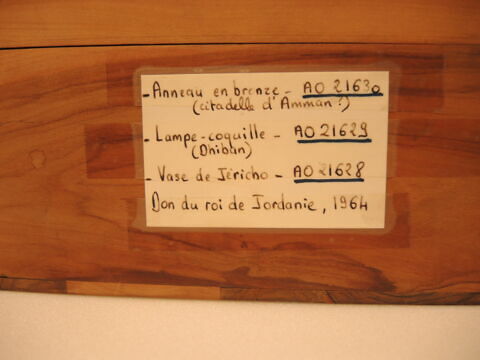 - Anneau en bronze - AO 21630
(citadelle d'Amman?)
- Lampe-coquille - AO 21629
(Dhiban)
- Vase de Jéricho - AO 21628
Don du roi de Jordanie, 1964